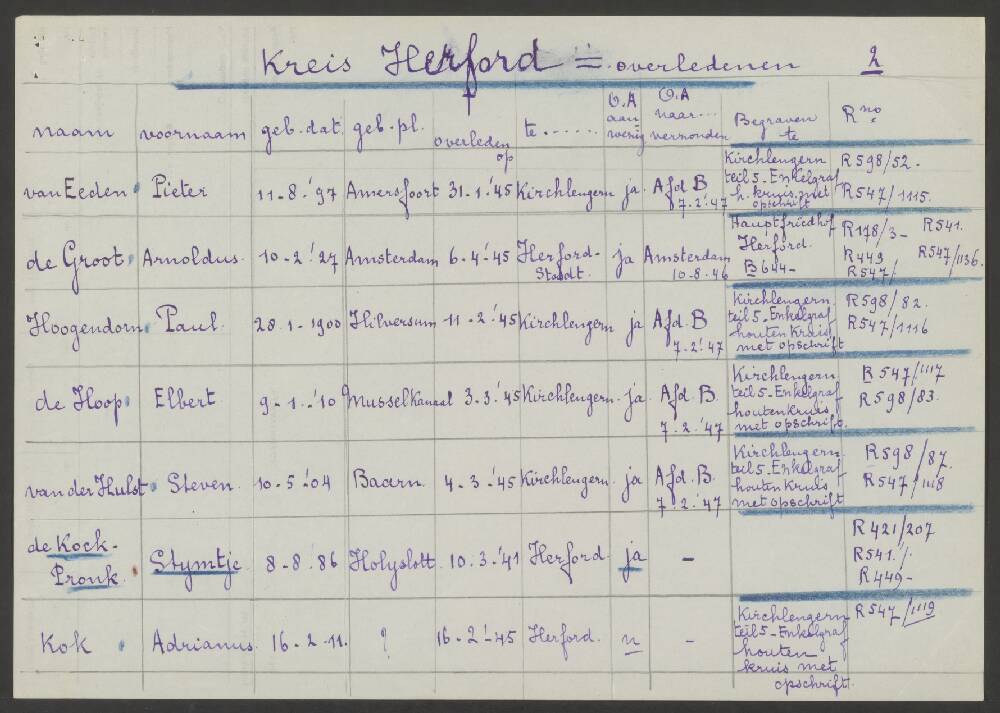 Kreis Herford = overledenen 2
naam voornaam geb. dat. geb. pl. † overleden op te ...... O.A aan wezig O.A naar... verzonden Begraven te R no.
van Eeden Pieter 11-8-'97 Amersfoort 31-1-'45 Kirchlengern ja Afd. B 7-2-'47 Kirchlengern teil 5-Enkelgraf h. kruis met opschrift R598/52. R547/1115.
de Groot Arnoldus. 10-2-'27 Amsterdam 6-4-'45 Herford-Stadt. ja Amsterdam 10-8-46 Hauptfriedhof Herford. B 644- R178/3- R541. R449 R547/1136. R547/
Hoogendorn Paul. 28-1-1900 Hilversum 11-2-'45 Kirchlengern ja Afd. B 7-2-'47 Kirchlengern teil 5-Enkelgraf houten Kruis met opschrift R598/82. R547/1116
de Hoop Elbert 9-1-'10 Musselkanaal 3-3-'45 Kirchlengern. ja Afd. B. 7-2-'47 Kirchlengern teil 5-Enkelgraf houtenkruis met opschrift. R547/1117 R598/83.
van der Hulst Steven. 10-5-'04 Baarn. 4-3-'45 Kirchlengern. ja Afd. B. 7-2-'47 Kirchlengern. teil 5-Enkelgraf houten Kruis met opschrift R598/87. R547/1118
de Kock-Pronk. Stymtje 8-8-'86 Holyslott 10.3-'41 Herford ja - R421/207 R541./. R449-
Kok Adrianus. 16-2-11. ? 16-2-'45 Herford. n - Kirchlengern teil 5-Enkelgraf houten kruis met opschrift. R547/1119